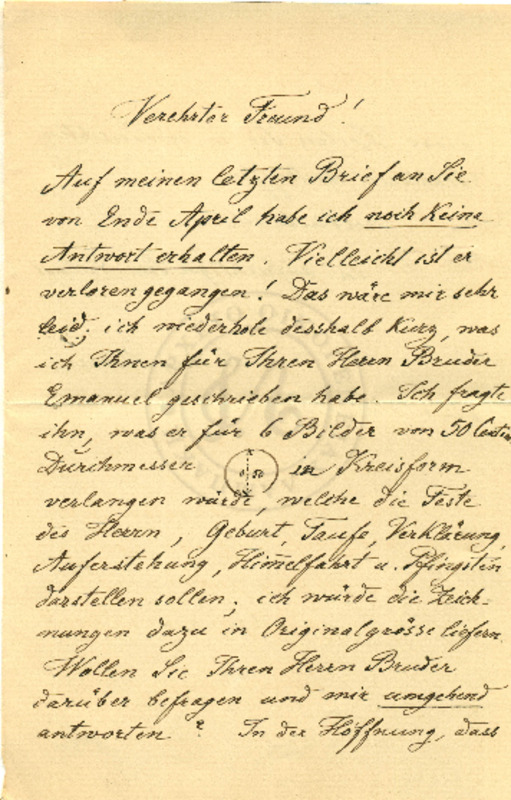 Verehrter Freund!
Auf meinen letzten Brief an Sie
von Ende April habe ich noch keine
Antwort erhalten. Vielleicht ist er
verloren gegangen! Das wäre mir sehr
leid. ich wiederhole desshalb kurz, was
ich Ihnen für Ihren Herrn Bruder
Emanuel geschrieben habe. Ich fragte
ihn, was er für 6 Bilder von 50 Centim
Durchmesser 50 in Kreisform
verlangen würde, welche die Feste
des Herrn, Geburt, Taufe, Verklärung,
Auferstehung, Him̄elfahrt u. Pfingsten
darstellen sollen; ich würde die Zeich-
nungen dazu in Originalgrösse liefern.
Wollen Sie Ihren Herrn Bruder
darüber befragen und mir umgehend
antworten? In der Hoffnung, dass